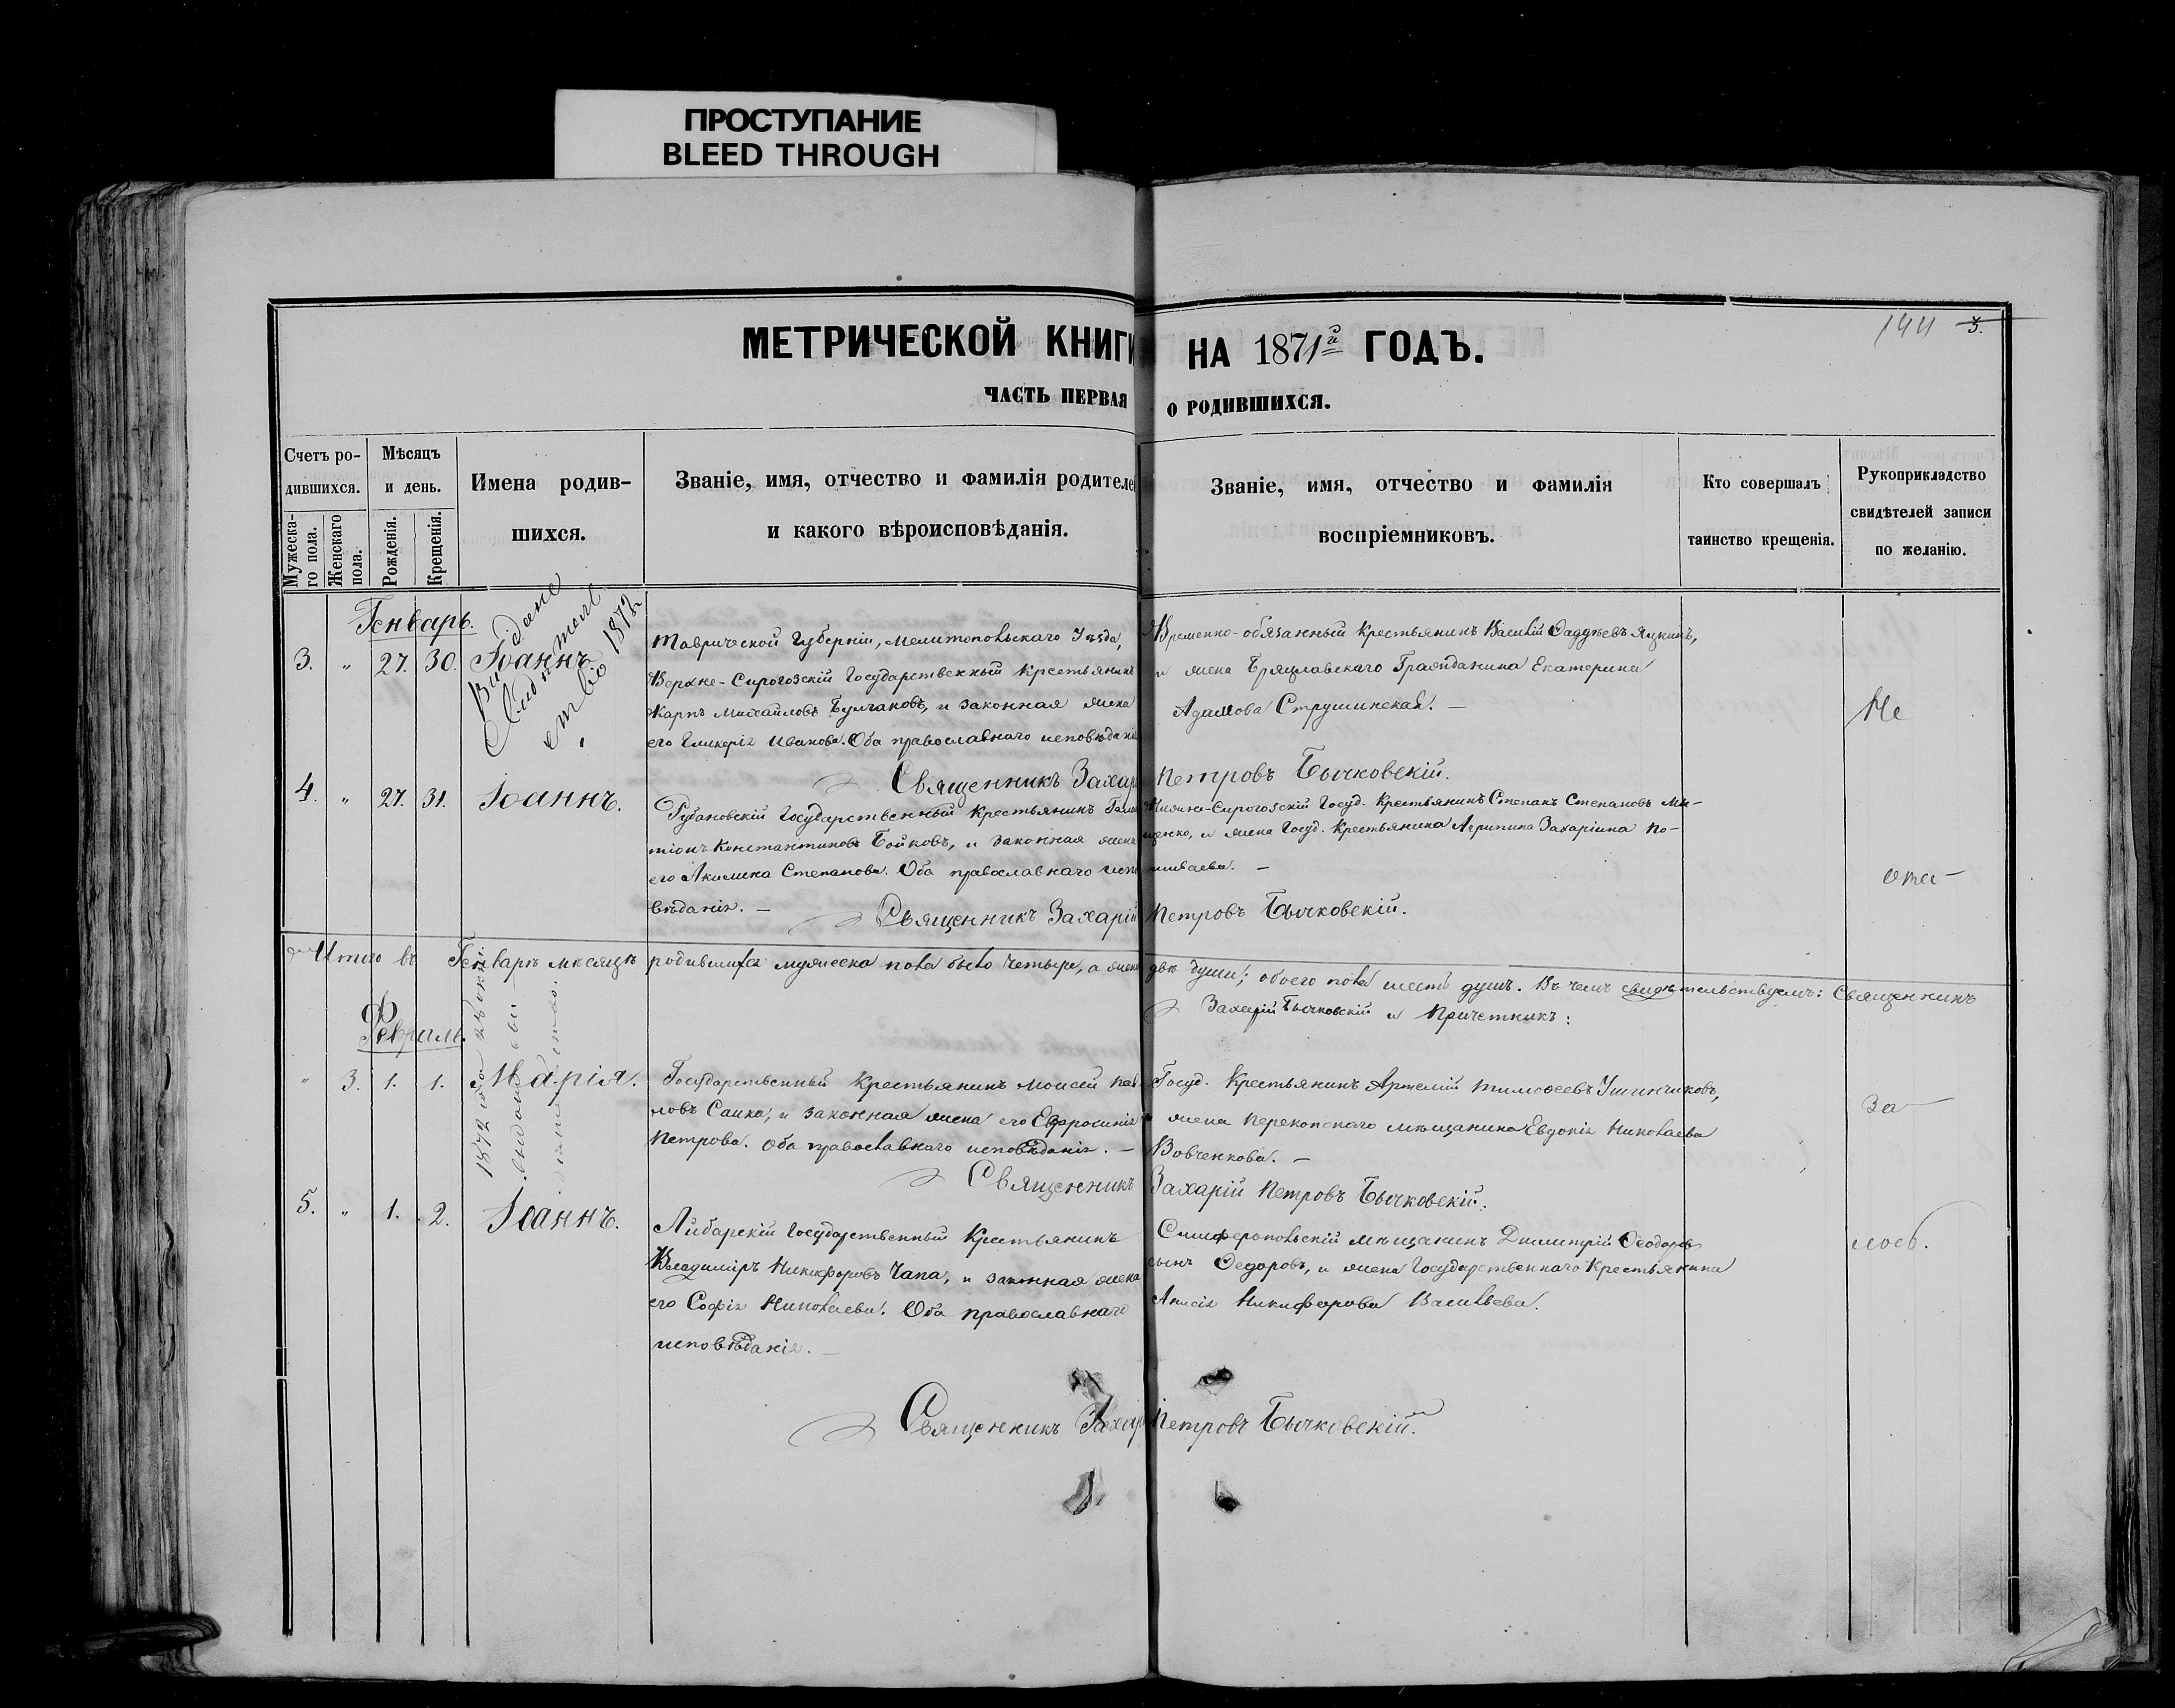 ПРОСТУПАНИЕ
BLEED THROUGH
МЕТРИЧЕСКОЙ КНИГИ НА 1871й ГОДЪ.
144 3.
ЧАСТЬ ПЕРВАЯ О РОДИВШИХСЯ.
Счетъ ро-
дившихся.
Мужеска-
го пола.
Женскаго
пола.
Мѣсяцъ
и день.
Рожденія.
Крещенія.
Имена родив-
шихся.
Званіе, имя, отчество и фамилія родителе
и какого вѣроисповѣданія.
Званіе, имя, отчество и фамилія
воспріемниковъ.
Кто совершалъ
таинство крещенія.
Рукоприкладство
свидѣтелей записи
по желанію.
Генварь.
3. " 27. 30. Іоаннъ.
1872
Таврической Губерніи, Мелитопольскаго Уѣзда,
Верхне-Сирогозскій Государственный Крестьянинъ
Карпъ Михайловъ Булгановъ, и законная жена
его Гликерія Иванова. Оба православнаго исповѣдані
Временно-обязанный Крестьянинъ Василій Фаддѣевъ Яцкинъ,
и жена Бряцлавскаго Гражданина Екатерина
Адамова Струшинская. —
Не
Священникъ Захар Петровъ Бычковскій.
4. " 27. 31. Іоаннъ.
Рубановскій Государственный Крестьянинъ Гала
тіонъ Константиновъ Бойковъ, и законная жена
его Акилина Степанова. Оба православнаго испо
вѣданія. —
Нижне-Сирогозскій Госуд. Крестьянинъ Степанъ Степановъ Ми-
щенко, и жена Госуд. Крестьянина Агрипина Захаріина По-
тиваева. —
ока-
Священникъ Захарій Петровъ Бычковскій.
Итого въ Генварѣ мѣсяцѣ родившихся мужеска пола было четыре, а женска двѣ души; обоего пола шесть душъ. Въ чемъ свидѣтельствуемъ: Священникъ
Захарій Бычковскій и Причетникъ:
Февраль.
" 3. 1. 1. Марія.
1872 года
Государственный Крестьянинъ Моисей Пав
ловъ Саика, и законная жена его Евфросинія
Петрова. Оба православнаго исповѣданія. —
Госуд. Крестьянинъ Артемій Тимофеевъ Ушинчиковъ,
жена Перекопскаго мѣщанина Евдокія Николаева
Вовченкова. —
за-
Священникъ Захарій Петровъ Бычковскій.
5. " 1. 2. Іоаннъ.
Айбарскій Государственный Крестьянинъ
Владиміръ Никифоровъ Чапа, и законная жена
его Софія Николаева. Оба православнаго
исповѣданія. —
Симферопольскій мѣщанинъ Димитрій Феодоровъ
сынъ Федоровъ, и жена Государственнаго Крестьянина
Анисія Никифорова Васильева.
лось.
Священникъ Захар Петровъ Бычковскій.